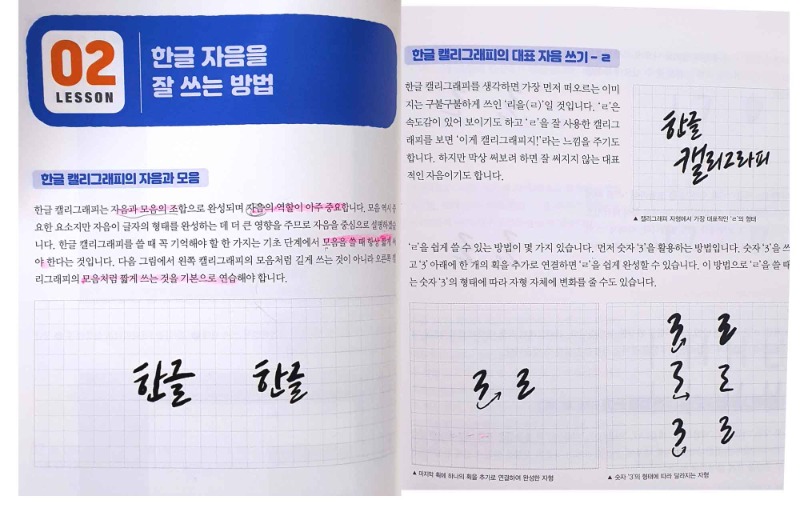 02
LESSON
한글 자음을
잘 쓰는 방법
한글 캘리그래피의 자음과 모음
한글 캘리그래피는 자음과 모음의 조합으로 완성되며 자음의 역할이 아주 중요합니다. 모음 역시
요한 요소지만 자음이 글자의 형태를 완성하는 데 더 큰 영향을 주므로 자음을 중심으로 설명하겠습
니다. 한글 캘리그래피를 쓸 때 꼭 기억해야 할 한 가지는 기초 단계에서 모음을 쓸 때 항상 짧게 써
야 한다는 것입니다. 다음 그림에서 왼쪽 캘리그래피의 모음처럼 길게 쓰는 것이 아니라 오른쪽
리그래피의 모음처럼 짧게 쓰는 것을 기본으로 연습해야 합니다.
한글 한글
한글 캘리그래피의 대표 자음 쓰기 - ㄹ
한글 캘리그래피를 생각하면 가장 먼저 떠오르는 이미
지는 구불구불하게 쓰인 '리을(ㄹ)'일 것입니다. 'ㄹ'은
속도감이 있어 보이기도 하고 'ㄹ'을 잘 사용한 캘리그
래피를 보면 '이게 캘리그래피지!'라는 느낌을 주기도
합니다. 하지만 막상 써보려 하면 잘 써지지 않는 대표
적인 자음이기도 합니다.
한글
캘리그라피
▲ 캘리그래피 자형에서 가장 대표적인 'ㄹ'의 형태
'ㄹ'을 쉽게 쓸 수 있는 방법이 몇 가지 있습니다. 먼저 숫자 '3'을 활용하는 방법입니다. 숫자 '3'을 쓰
고 '3' 아래에 한 개의 획을 추가로 연결하면 'ㄹ'을 쉽게 완성할 수 있습니다. 이 방법으로 'ㄹ'을 쓸 때
는 숫자 '3'의 형태에 따라 자형 자체에 변화를 줄 수도 있습니다.
3 ㄹ
3 ㄹ
3 ㄹ
3 ㄹ
▲ 마지막 획에 하나의 획을 추가로 연결하여 완성한 자형
▲ 숫자 '3'의 형태에 따라 달라지는 자형